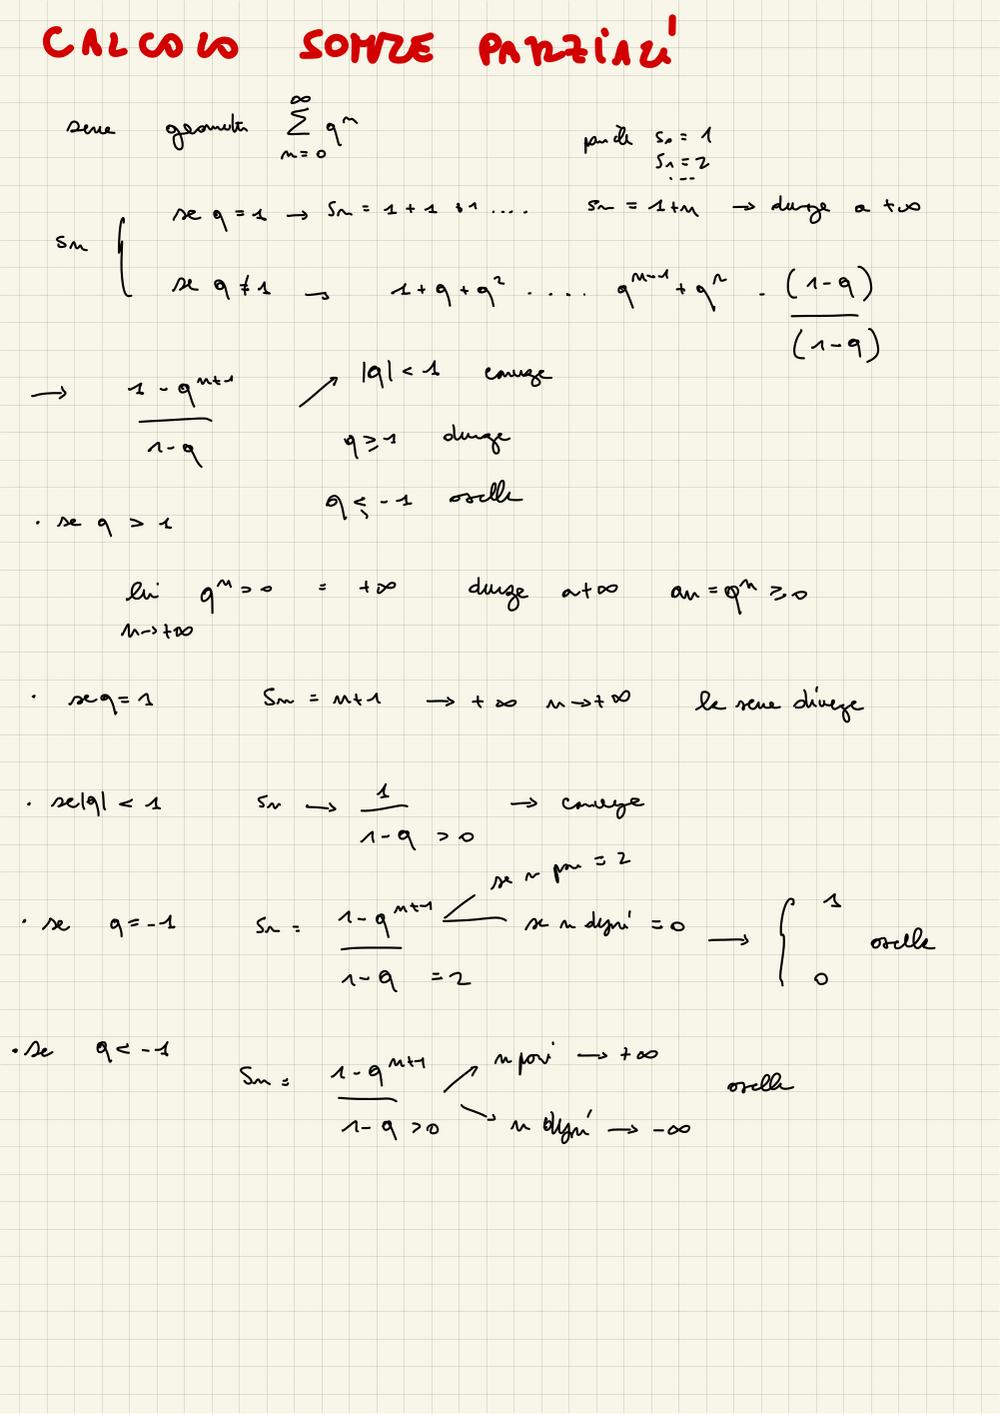 CALCOLO SOMME PARZIALI
serie geometr ∞ Σ n=0 q^n
perché S₀ = 1
S₁ = 2
...
Sn { se q = 1 → Sn = 1 + 1 + 1 .... Sn = 1+n → diverge a +∞
se q ≠ 1 → 1 + q + q² .... q^(n-1) + q^n · (1-q)/(1-q)
→ (1 - q^(n+1))/(1-q) ↗ |q| < 1 converge
q ≥ 1 diverge
q ≤ -1 oscilla
· se q > 1
lim n→+∞ q^n > 0 = +∞ diverge a +∞ an = q^n ≥ 0
· se q = 1 Sn = n+1 → +∞ n→+∞ la serie diverge
· se |q| < 1 Sn → 1/(1-q > 0) → converge
· se q = -1 Sn = (1-q^(n+1))/(1-q = 2) se n pari = 2
se n dispari = 0 → { 1 0 oscilla
· se q < -1 Sn = (1-q^(n+1))/(1-q > 0) ↗ n pari → +∞
↘ n dispari → -∞ oscilla